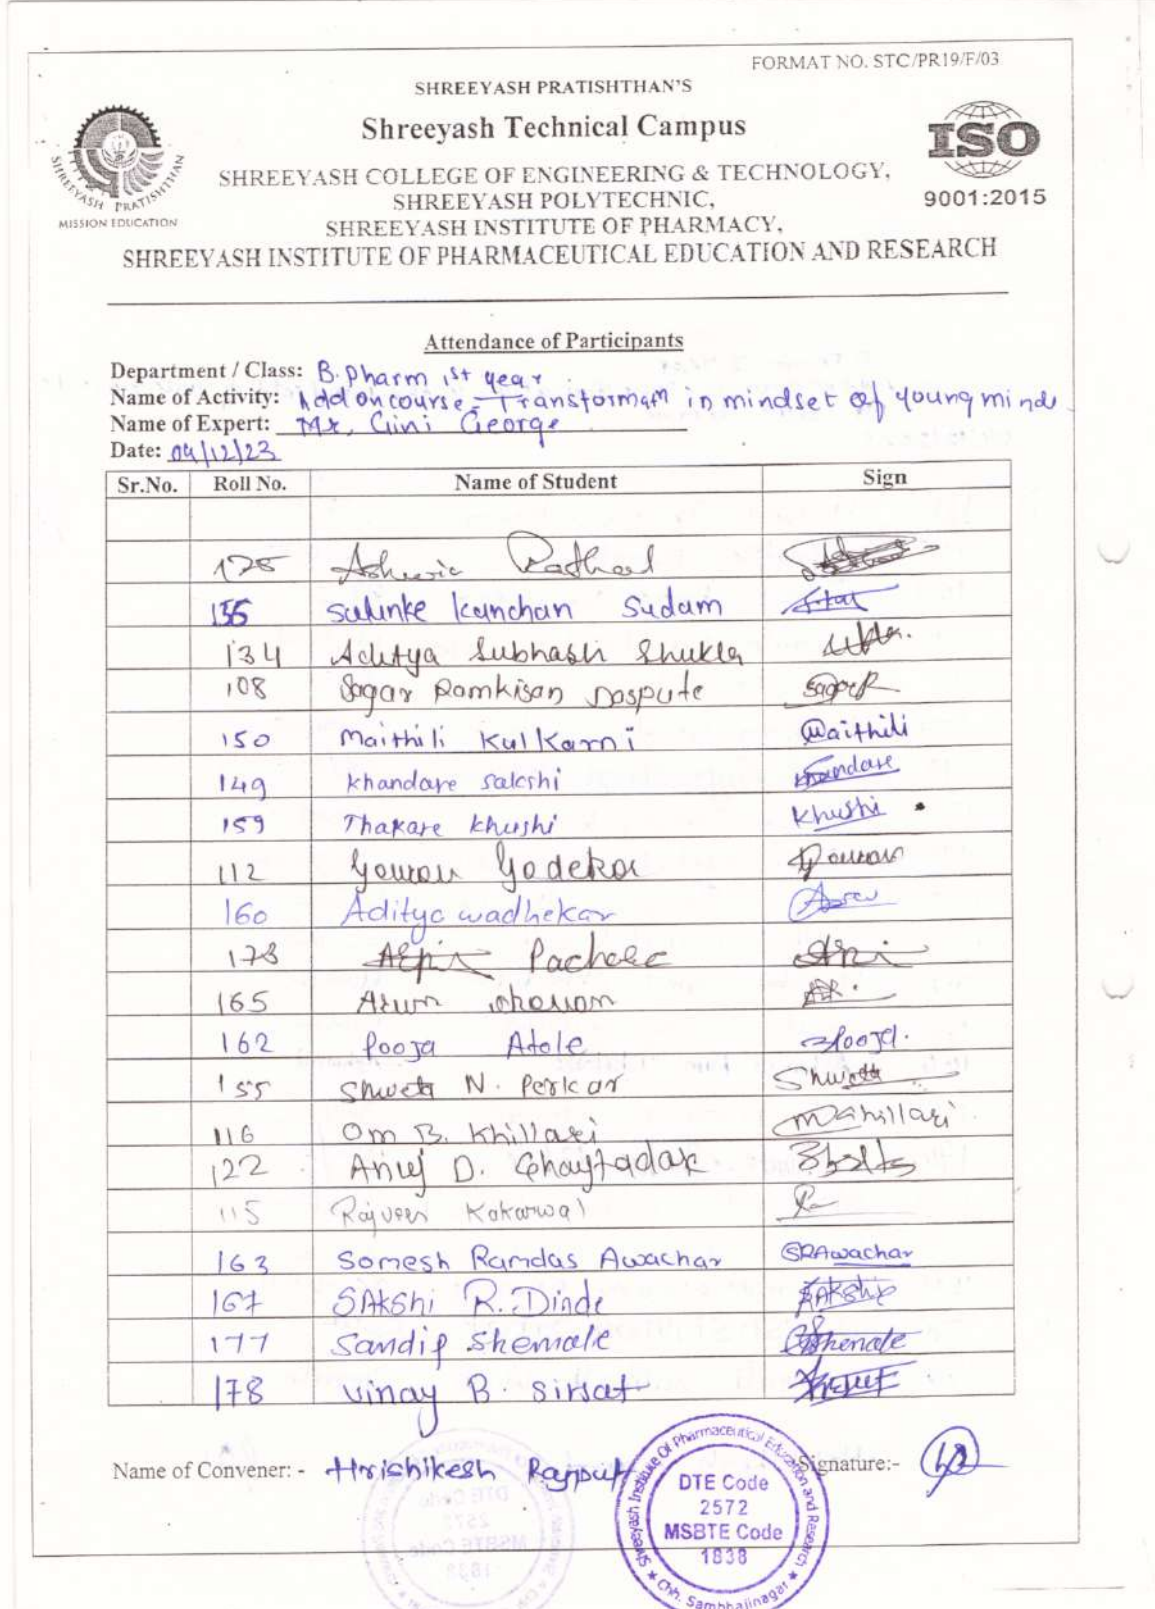 FORMAT NO. STC/PR19/F/03
SHREEYASH PRATISHTHAN'S
Shreeyash Technical Campus
SHREEYASH COLLEGE OF ENGINEERING & TECHNOLOGY,
SHREEYASH POLYTECHNIC,
SHREEYASH INSTITUTE OF PHARMACY,
SHREEYASH INSTITUTE OF PHARMACEUTICAL EDUCATION AND RESEARCH
SHREEYASH PRATISHTHAN
MISSION EDUCATION
ISO
9001:2015
Attendance of Participants
Department / Class: B.Pharm 1st year
Name of Activity: Add on course - in mindset of young minds
Name of Expert: Mr. Gini George
Date: 04/12/23
Sr.No. Roll No. Name of Student Sign
Rathod
Salunke Kanchan Sudam
134 Aditya Subhash Shukla
108 Sagar Ramkisan Daspute
150 Maithili Kulkarni Maithili
149 Khandare Sakshi Khandare
159 Thakare Khushi Khushi
112
160 Aditya wadhekar
165 Arun
162 Pooja Atole Pooja.
155 Shweta N. Perkar Shweta
116 Om B. Khillari
122 Anuj D.
115 Rajveer Kakarwal
163 Somesh Ramdas Awachar SRAwachar
167 SAKShi R. Dinde SAKShi
177 Sandip Shemale
178 Vinay B. Sirsat
Name of Convener: - Hrishikesh Rajput Signature:-
Shreeyash Institute Of Pharmaceutical Education and Research
DTE Code
2572
MSBTE Code
1838
Chh. Sambhajinagar